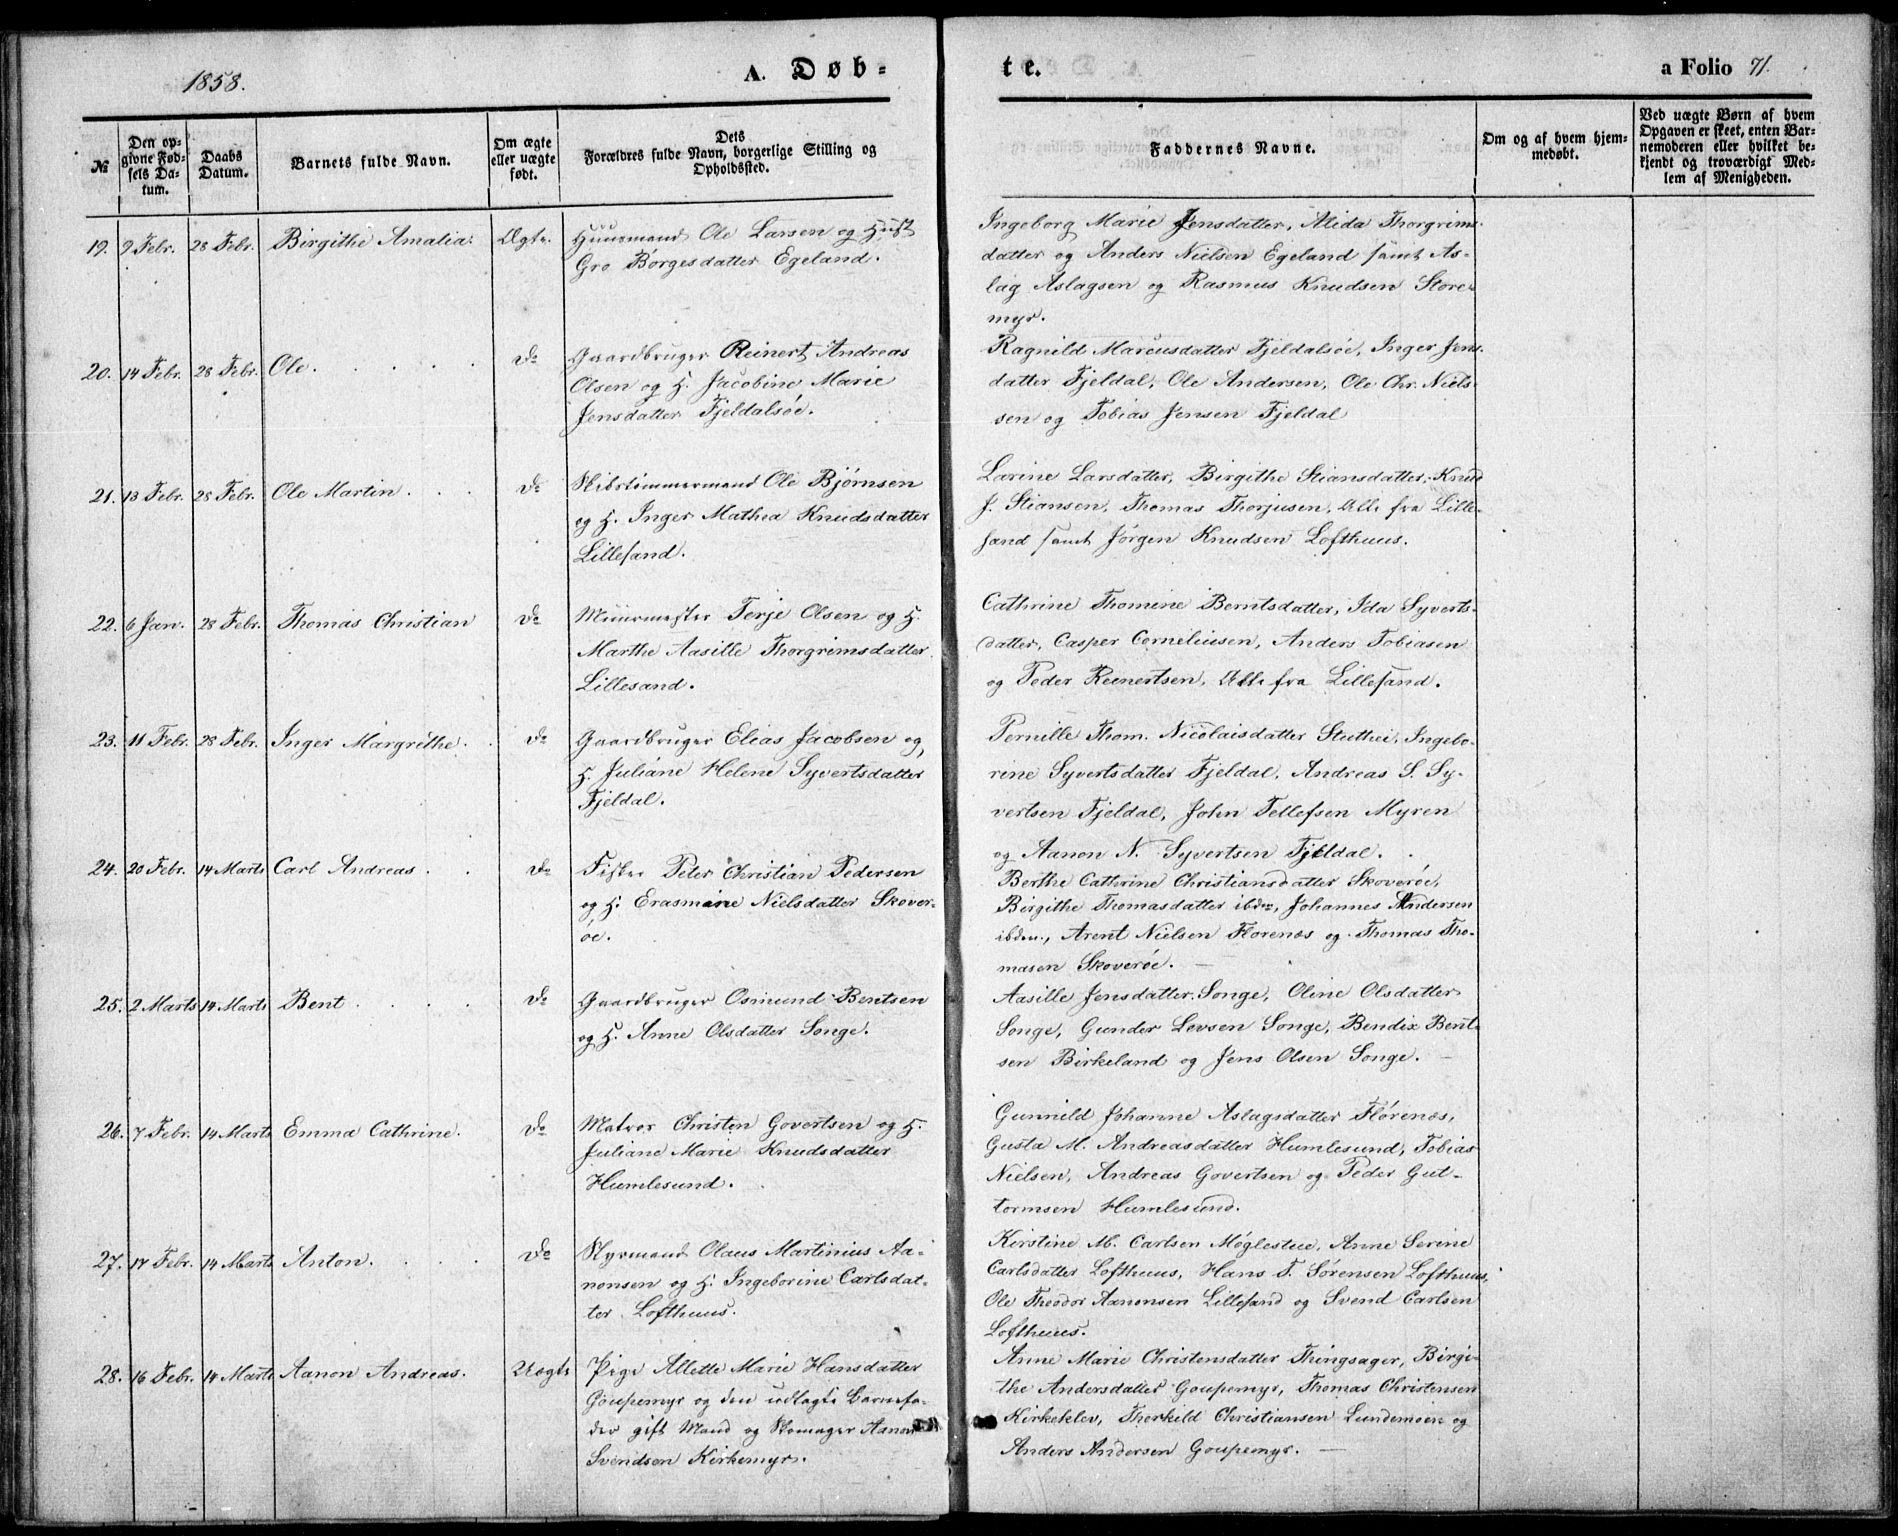 1858.
A. Døb-
te.
a Folio 71.
№
Den op-
givne Fød-
sels Da-
tum.
Daabs
Datum.
Barnets fulde Navn.
Om ægte
eller uægte
født.
Dets
Forældres fulde Navn, borgerlige Stilling og
Opholdssted.
Faddernes Navne.
Om og af hvem hjem-
medøbt.
Ved uægte Børn af hvem
Opgaven er skeet, enten Bar-
nemoderen eller hvilket be-
kjendt og troværdigt Med-
lem af Menigheden.
19. 9 Febr. 28 Febr. Birgithe Amalia. Ægte.
Huusmand Ole Larsen og Hust
Gro Børgesdatter Egeland.
Ingeborg Marie Jensdatter, Alida Thorgrims-
datter og Anders Nielsen Egeland samt As-
lag Aslagsen og Rasmus Knudsen Store-
myr.
20. 14 Febr. 28 Febr. Ole. Do
Gaardbruger Reinert Andreas
Olsen og H. Jacobine Marie
Jensdatter Fjeldalsöe.
Ragnild Marcusdatter Fjeldalsöe, Inger Jens-
datter Fjeldal, Ole Andersen, Ole Chr. Niel-
sen og Tobias Jensen Fjeldal
21. 13 Febr. 28 Febr. Ole Martin. Do
Skibstømmermand Ole Bjørnsen
og H. Inger Mathea Knudsdatter
Lillesand.
Larine Larsdatter, Birgithe Stiansdatter, Knud
J. Stiansen, Thomas Thorjusen, Alle fra Lille-
sand samt Jørgen Knudsen Lofthuus.
22. 6 Jan. 28 Febr. Thomas Christian Do
Muurmester Terje Olsen og H.
Marthe Aasille Thorgrimsdatter
Lillesand.
Cathrine Thomine Berntsdatter, Ida Syverts-
datter, Casper Corneliusen, Anders Tobiasen
og Peder Reinertsen, Alle fra Lillesand.
23. 11 Febr. 28 Febr. Inger Margrethe. Do
Gaardbruger Elias Jacobsen og
H. Juliane Helene Syvertsdatter
Fjeldal.
Pernille Thom. Nicolaisdatter Stuthei, Ingebo-
rine Syvertsdatter Fjeldal, Andreas S. Sy-
vertsen Fjeldal, John Tellefsen Myren
og Aanon N. Syvertsen Fjeldal.
24. 20 Febr. 14 Marts Carl Andreas. Do
Fisker Peter Christian Pedersen
og H. Erasmine Nielsdatter Skover-
öe.
Berthe Cathrine Christiansdatter Skoveröe,
Birgithe Thomasdatter ibdm, Johannes Andersen
ibdm., Arent Nielsen Florenæs og Thomas Tho-
masen Skoveröe.
25. 2 Marts 14 Marts Bent Do
Gaardbruger Osmund Bentsen
og H. Anne Olsdatter Songe.
Aasille Jensdatter Songe, Oline Olsdatter
Songe, Gunder Lovsen Songe, Bendix Bent-
sen Birkeland og Jens Olsen Songe.
26. 7 Febr. 14 Marts Emma Cathrine. Do
Matros Christen Govertsen og H.
Juliane Marie Knudsdatter
Humlesund.
Gunnild Johanne Aslagsdatter Flörenæs,
Gusta M. Andreasdatter Humlesund, Tobias
Nielsen, Andreas Govertsen og Peder Gut-
tormsen Humlesund.
27. 17 Febr. 14 Marts Anton. Do
Styrmand Olaus Martinius Aa-
nonsen og H. Ingeborine Carlsdat-
ter Lofthuus.
Kirstine M. Carlsen Møglestue, Anne Serine
Carlsdatter Lofthuus, Hans T. Sørensen Lofthuus,
Ole Theodor Aanonsen Lillesand og Svend Carlsen
Lofthuus.
28. 16 Febr. 14 Marts Aanon Andreas. Uægte
Pige Allette Marie Hansdatter
Goupemyr og den udlagte Barnefa-
der gift Mand og Skomager Aanon
Svendsen Kirkemyr.
Anne Marie Christensdatter Thingsager, Birgi-
the Andersdatter Goupemyr, Thomas Christensen
Kirkeklev, Therkild Christiansen Lundemoen og
Anders Andersen Goupemyr.